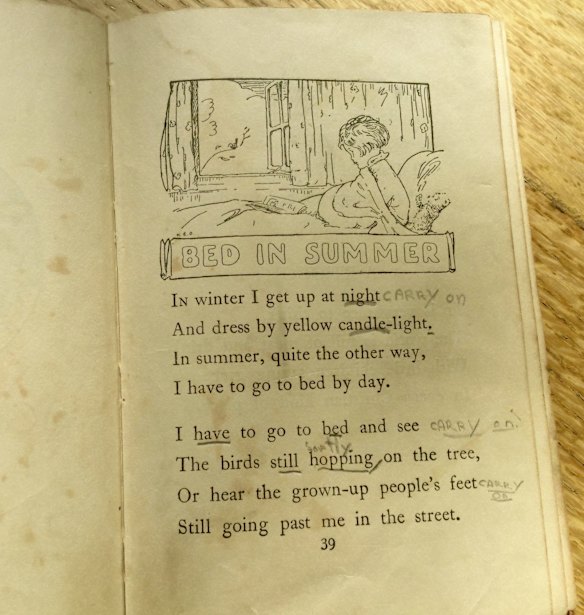 BED IN SUMMER
IN winter I get up at night CARRY on
And dress by yellow candle-light.
In summer, quite the other way,
I have to go to bed by day.
I have to go to bed and see CARRY on
softly
The birds still hopping on the tree,
Or hear the grown-up people's feet CARRY
on
Still going past me in the street.
39